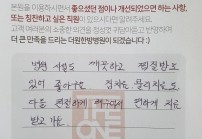 본원을 이용하시면서 좋으셨던 점이나 개선되었으면 하는 사항,
또는 칭찬하고 싶은 직원이 있으시다면 알려주세요.
고객 여러분의 소중한 의견을 정성껏 귀담아듣고 반영하여
더 큰 만족을 드리는 더원한방병원이 되겠습니다 :)
병원 시설도 깨끗하고 친절한
있어 좋아구요 점차로 물리치료도
다들 친절하게 해주셔서 편하게 치료
받고 가요
THE
ONE